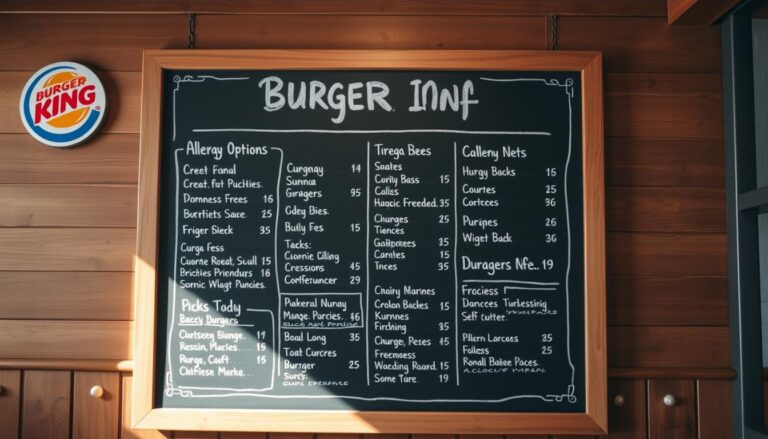 BURGER KING
BURGER INNF
Allergy Options
Creet Fanal
Creat. fut Puchlies.
Domness Frees 16
Burtfiets Sace 25
Friger Sleck 35
Curga Fess
Cuorne Roeat, Scull 15
Brichles Priendurs 16
Sornic Wlagt Puncies.
Picks Tody
Baccy Durgers
Chirtseey Bunge 17
Rescin, Macies 15
Rurge, Coft 15
Chitflese Marke
Curngnay 14
Sunnaz
Gurugers 95
Cdey Bies.
Buily Fes 15
Tacks:
Cioinie Cliing
Cressions 45
Confferuncer 29
Pukeral Nuray
Mange. Parcies. 46
Boal Long 35
Toat Curcres
Burger 25
Surcy:
Tirega Bees
Snates
Corily Bass 15
Calles
Huacic Freeded. 35
Churges 25
Tiences
Galibmrees 35
Camtes 15
Tnces 35
Cnairy Mannes
Crolon Backes 15
Kurnnes
Firclning 35
Churge, Peses 45
Freemness
Wacding Raard. 15
Some Tare 19
Calleny Nets
Hurgy Backs 15
Courtes 25
Cortcees 36
Puripes 26
Wiget Back 36
Duragers Nfe.. 19
Frociess
Dancces Turclessinig
Seff cutter.
Pllern Larcass 35
Fuliess 25
Ronall Balsee Paces.